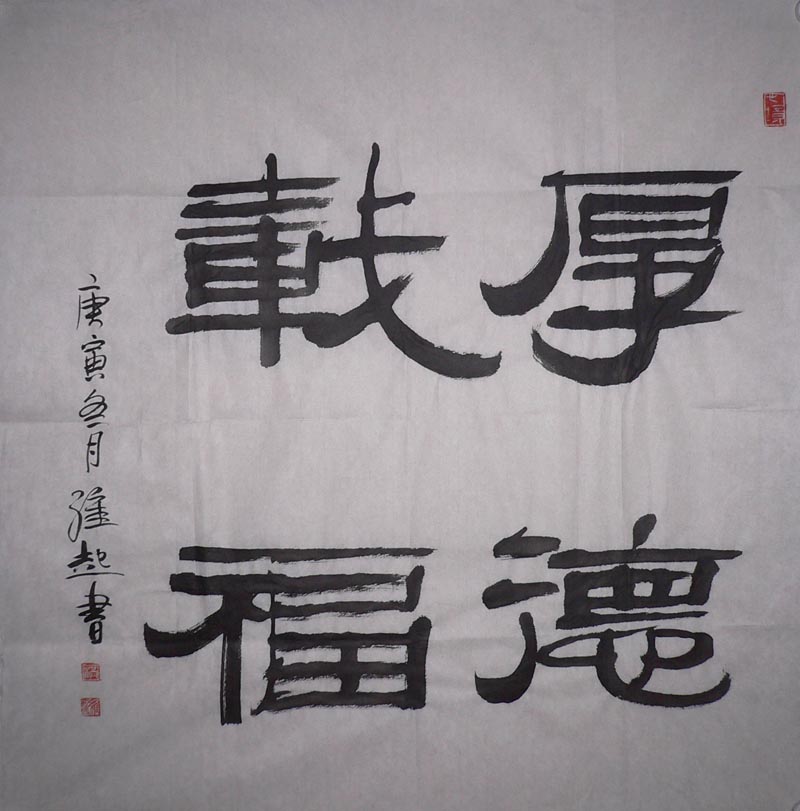 厚德
載福
庚寅冬月 起書